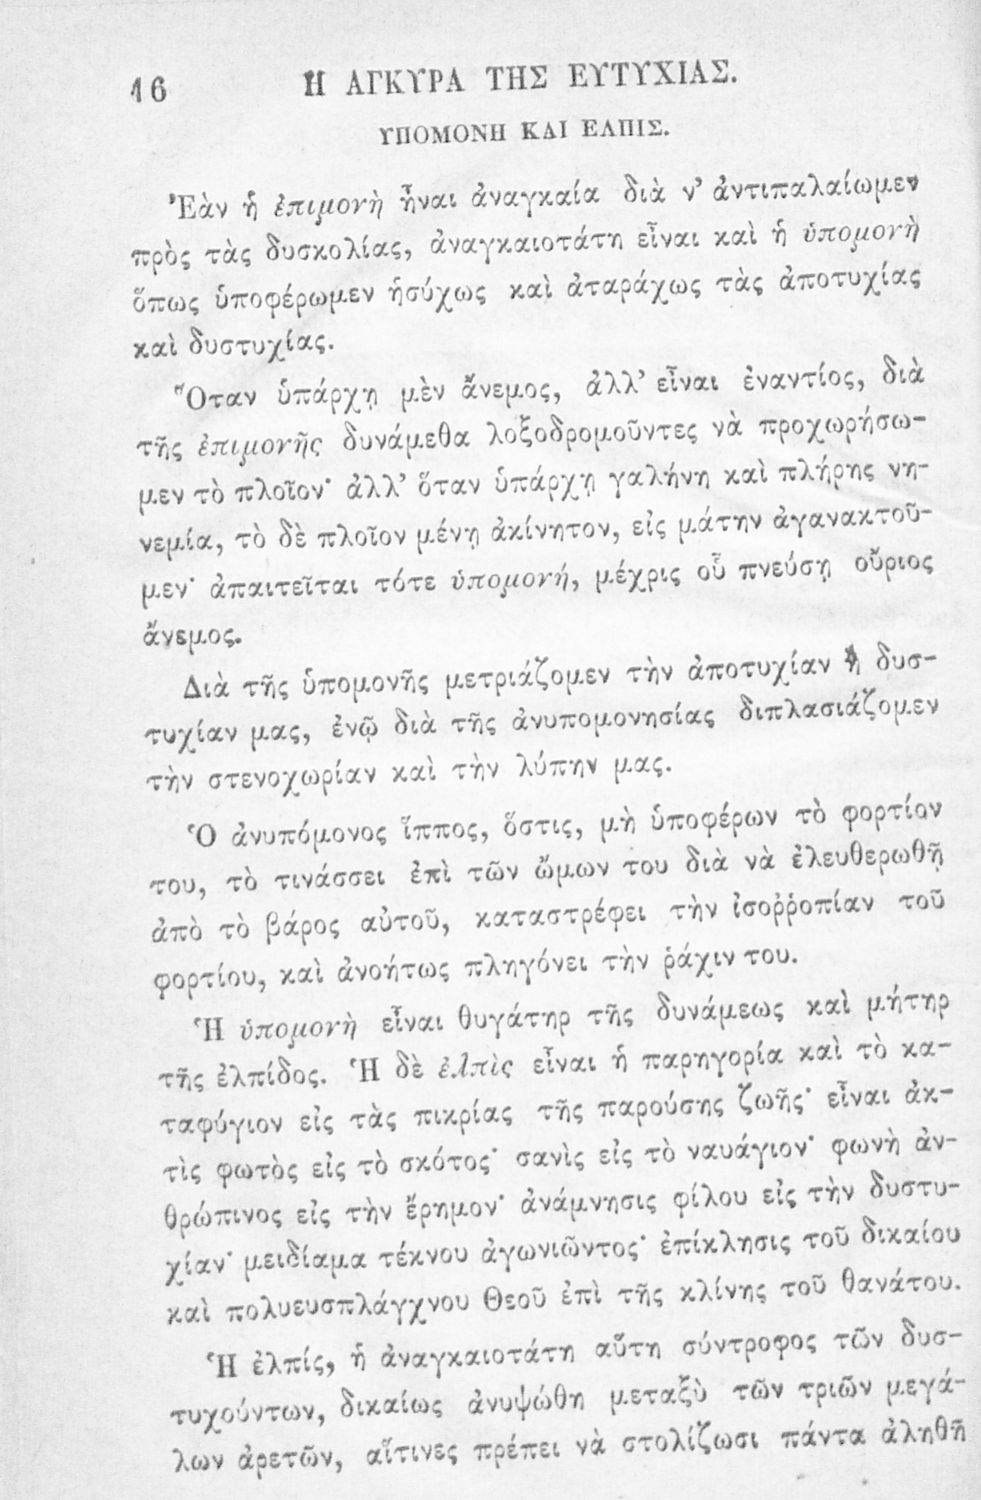 16 Η ΑΓΚΥΡΑ ΤΗΣ ΕΥΤΥΧΙΑΣ.
ΥΠΟΜΟΝΗ ΚΑΙ ΕΛΠΙΣ.
Ἐὰν ἡ ἐπιμονὴ ἦναι ἀναγκαία διὰ ν’ ἀντιπαλαίωμεν
πρὸς τὰς δυσκολίας, ἀναγκαιοτάτη εἶναι καὶ ἡ ὑπομονὴ
ὅπως ὑποφέρωμεν ἡσύχως καὶ ἀταράχως τὰς ἀποτυχίας
καὶ δυστυχίας.
Ὅταν ὑπάρχῃ μὲν ἄνεμος, ἀλλ’ εἶναι ἐναντίος, διὰ
τῆς ἐπιμονῆς δυνάμεθα λοξοδρομοῦντες νὰ προχωρήσω-
μεν τὸ πλοῖον· ἀλλ’ ὅταν ὑπάρχῃ γαλήνη καὶ πλήρης νη-
νεμία, τὸ δὲ πλοῖον μένῃ ἀκίνητον, εἰς μάτην ἀγανακτοῦ-
μεν· ἀπαιτεῖται τότε ὑπομονή, μέχρις οὗ πνεύσῃ οὔριος
ἄνεμος.
Διὰ τῆς ὑπομονῆς μετριάζομεν τὴν ἀποτυχίαν ἢ δυσ-
τυχίαν μας, ἐνῷ διὰ τῆς ἀνυπομονησίας διπλασιάζομεν
τὴν στενοχωρίαν καὶ τὴν λύπην μας.
Ὁ ἀνυπόμονος ἵππος, ὅστις, μὴ ὑποφέρων τὸ φορτίον
του, τὸ τινάσσει ἐπὶ τῶν ὤμων του διὰ νὰ ἐλευθερωθῇ
ἀπὸ τὸ βάρος αὐτοῦ, καταστρέφει τὴν ἰσοῤῥοπίαν τοῦ
φορτίου, καὶ ἀνοήτως πληγόνει τὴν ῥάχιν του.
Ἡ ὑπομονὴ εἶναι θυγάτηρ τῆς δυνάμεως καὶ μήτηρ
τῆς ἐλπίδος. Ἡ δὲ ἐλπὶς εἶναι ἡ παρηγορία καὶ τὸ κα-
ταφύγιον εἰς τὰς πικρίας τῆς παρούσης ζωῆς· εἶναι ἀκ-
τὶς φωτὸς εἰς τὸ σκότος· σανὶς εἰς τὸ ναυάγιον· φωνὴ ἀν-
θρώπινος εἰς τὴν ἔρημον· ἀνάμνησις φίλου εἰς τὴν δυστυ-
χίαν· μειδίαμα τέκνου ἀγωνιῶντος· ἐπίκλησις τοῦ δικαίου
καὶ πολυευσπλάγχνου Θεοῦ ἐπὶ τῆς κλίνης τοῦ θανάτου.
Ἡ ἐλπίς, ἡ ἀναγκαιοτάτη αὕτη σύντροφος τῶν δυσ-
τυχούντων, δικαίως ἀνυψώθη μεταξὺ τῶν τριῶν μεγά-
λων ἀρετῶν, αἵτινες πρέπει νὰ στολίζωσι πάντα ἀληθῆ